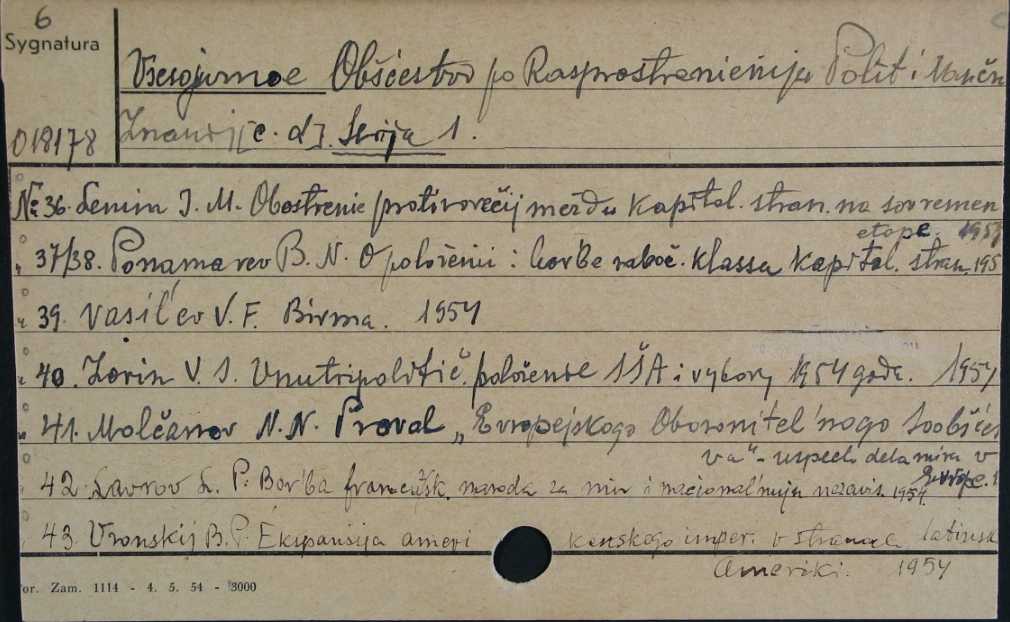 6
Sygnatura
Vsesojuznoe Obščestvo po Rasprostranieniju Polit i Naučn
018178 Znanij [c. d]. Serija 1.
№ 36. Lenin I. M. Obostrenie protivorečij meždu kapital. stran. na sovremen
etape. 195
" 37/38. Ponamarev B. N. O položenii i bor'be raboč. klassa kapital. stran. 195
" 39. Vasil'ev V. F. Birma. 1954
" 40. Zorin V. S. Vnutripolitič. položenie SŠA i vybory 1954 goda. 1954
" 41. Molčanov N. N. Proval „Evropejskogo Oboronitel'nogo Soobščes
va" - uspech dela mira v
Evrope.
42. Lavrov L. P. Bor'ba francuzsk. naroda za mir i nacional'nuju nezavis. 1954.
43. Vronskij B. P. Ekspansija ameri kanskogo imper. v stranach latinsk
Ameriki. 1954
or. Zam. 1114 - 4. 5. 54 - 3000